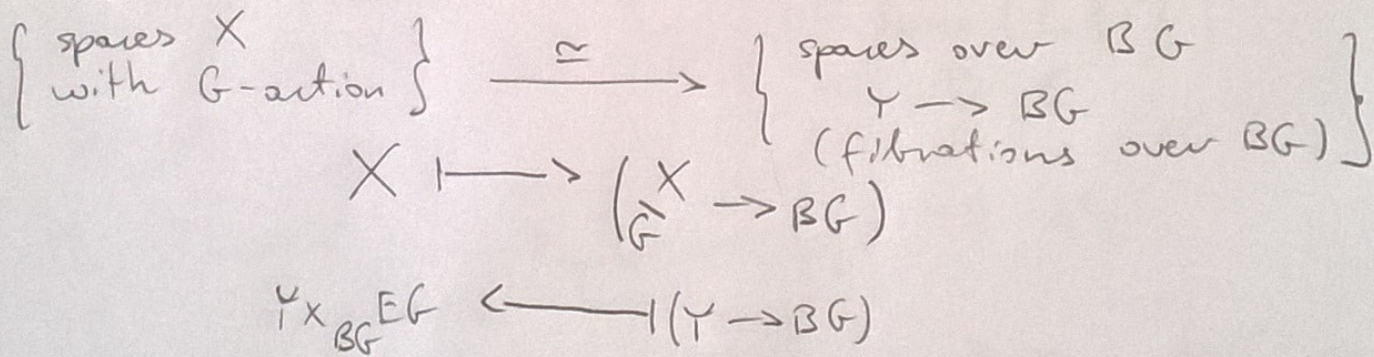 { spaces X with G-action } ≃⟶ { spaces over BG
Y → BG
(fibrations over BG) }
X ⟼ (G\X → BG)
Y ×_{BG} EG ⟻ (Y → BG)